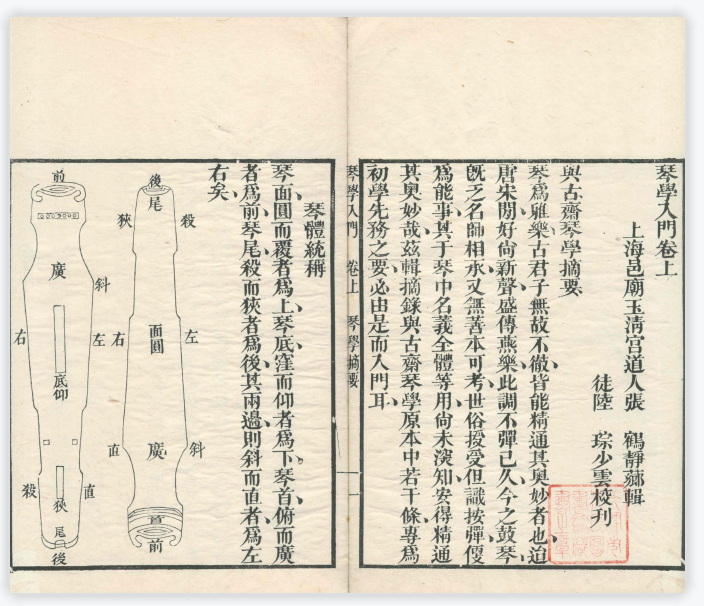 琴學入門卷上
上海邑廟玉清宮道人張 鶴靜薌輯
徒陸 琮少雲校刊
與古齋琴學摘要
琴爲雅樂古君子無故不徹皆能精通其奧妙者也迨
唐宋間好尚新聲盛傳燕樂此調不彈已久今之鼓琴、
旣乏名師相承、又無善本可考世俗授受但識按彈便
爲能事、其于琴中名義全體等用、尚未深知、安得精通
其奧妙哉、茲輯摘錄與古齋琴學原本中若干條、專爲
初學先務之要、必由是而入門耳、
琴學入門 卷上 琴學摘要 一
琴體統稱
琴、面圓而覆者爲上、琴底、窪而仰者爲下、琴首、俯而廣
者爲前、琴尾、殺而狹者爲後、其兩邊、則斜而直者、爲左
右矣、
後
尾
殺
狹
左
面圓
右
斜
廣
直
首
前
前
廣
斜
左
右
底仰
直
殺
狹
尾
後